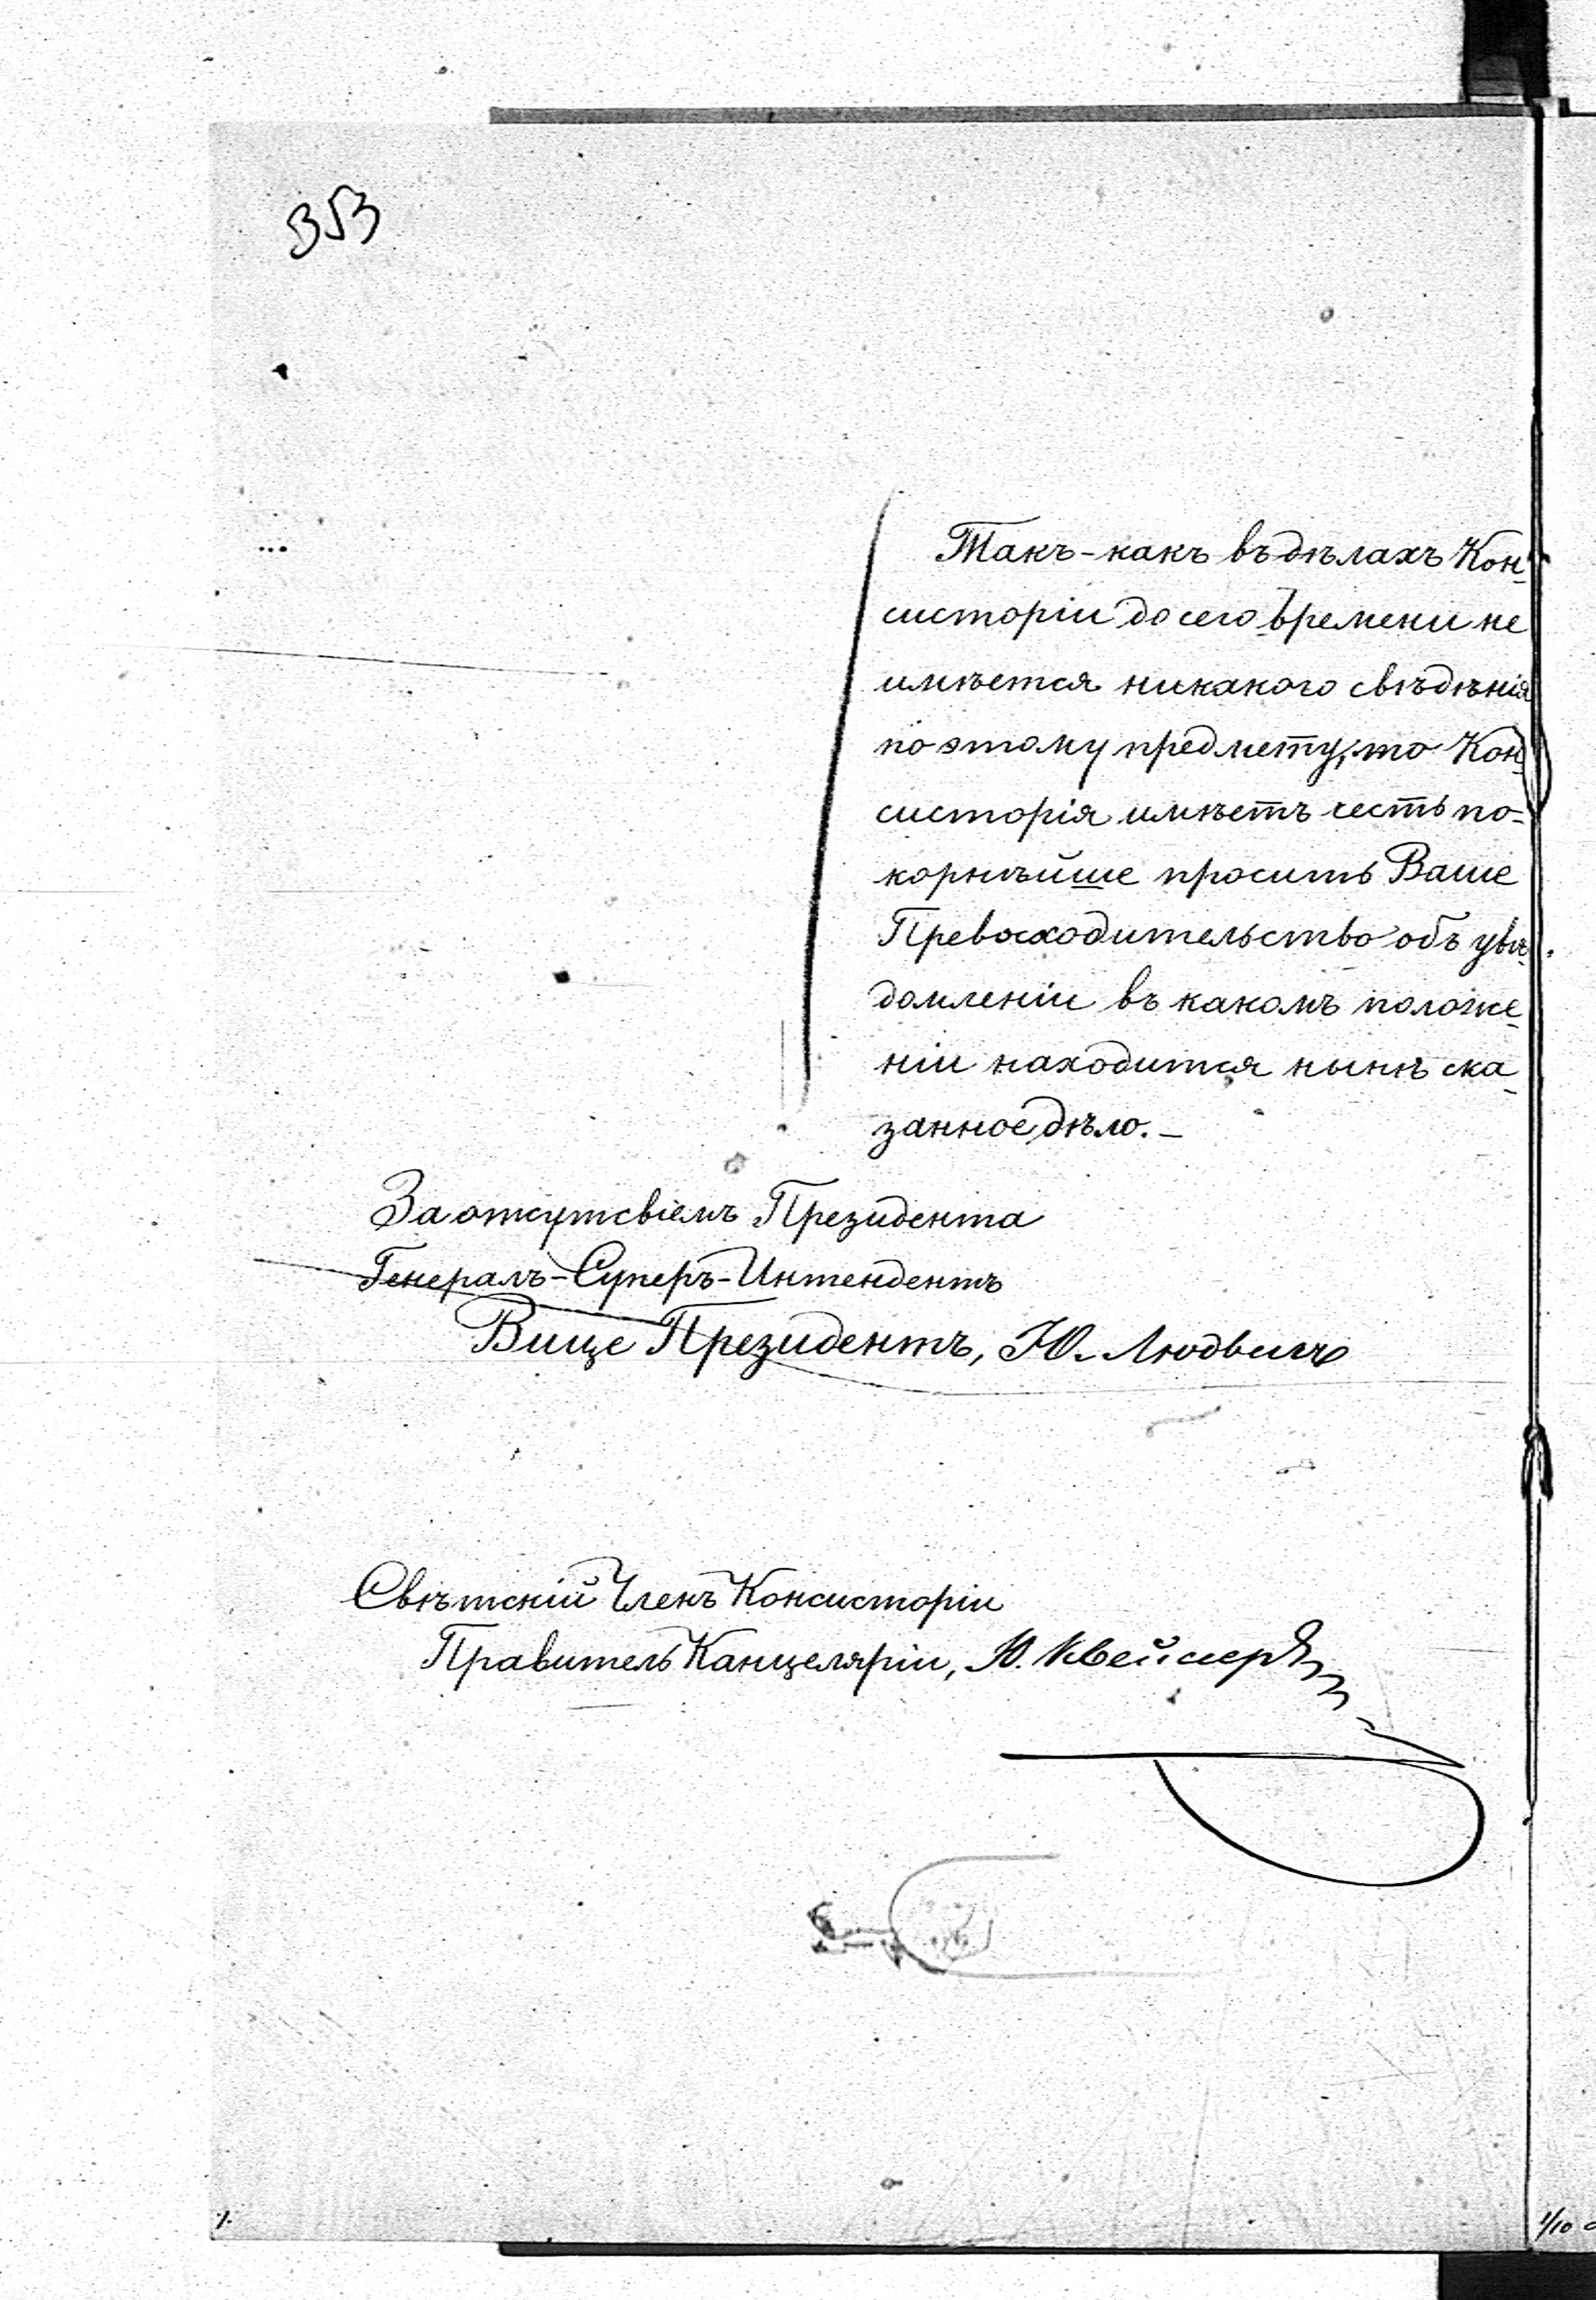 353
Такъ-какъ въ дѣлахъ Кон-
систоріи до сего времени не
имѣется никакого свѣдѣнія
по этому предмету, то Кон-
систорія имѣетъ честь по-
корнѣйше просить Ваше
Превосходительство объ увѣ-
домленіи въ какомъ положе-
ніи находится нынѣ ска-
занное дѣло.-
За отсутсвіемъ Президента
Генералъ-Суперъ-Интендентъ
Вице Президентъ, Ю. Людвигъ
Свѣтскій Членъ Консисторіи
Правитель Канцеляріи, Ю.
1/10